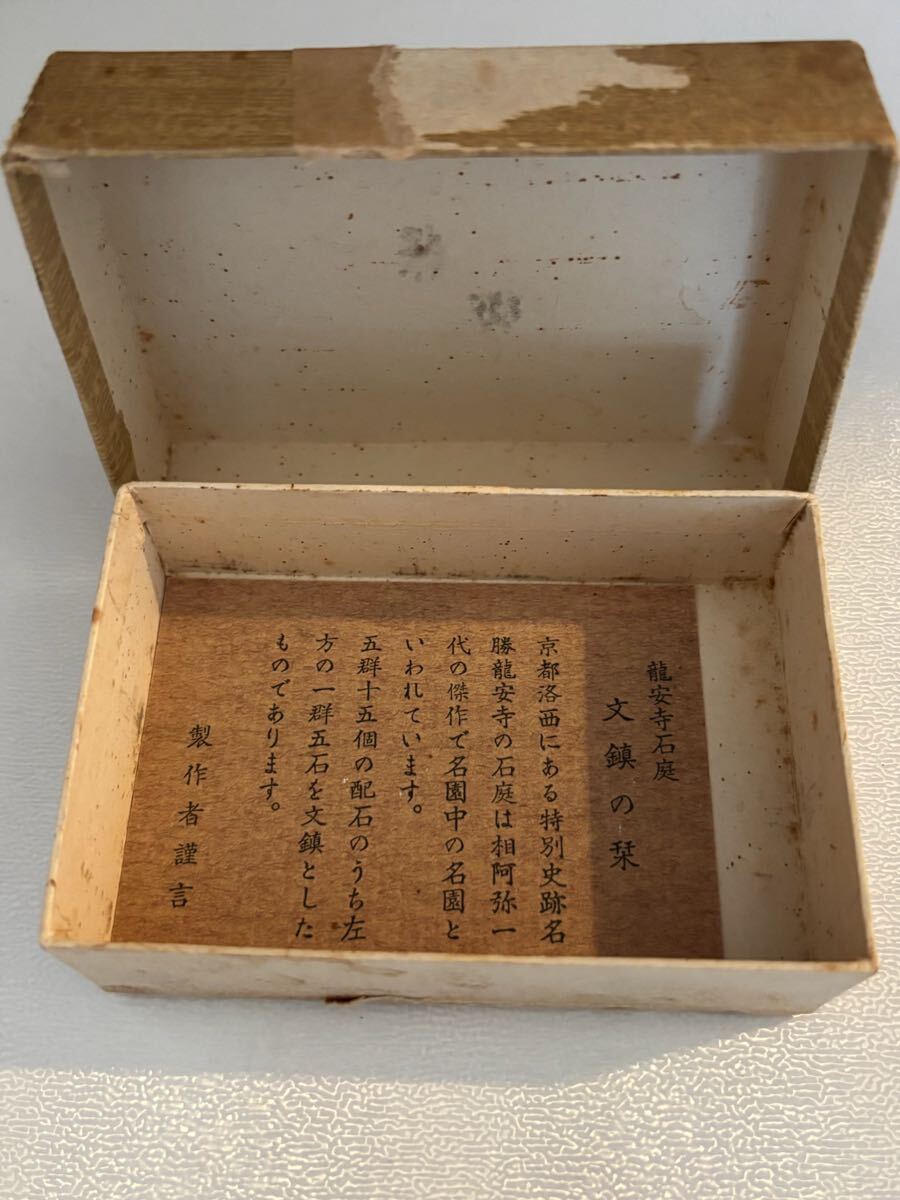 龍安寺石庭
文鎮の栞
京都洛西にある特別史跡名
勝龍安寺の石庭は相阿弥一
代の傑作で名園中の名園と
いわれています。
五群十五個の配石のうち左
方の一群五石を文鎮とした
ものであります。
製作者謹言